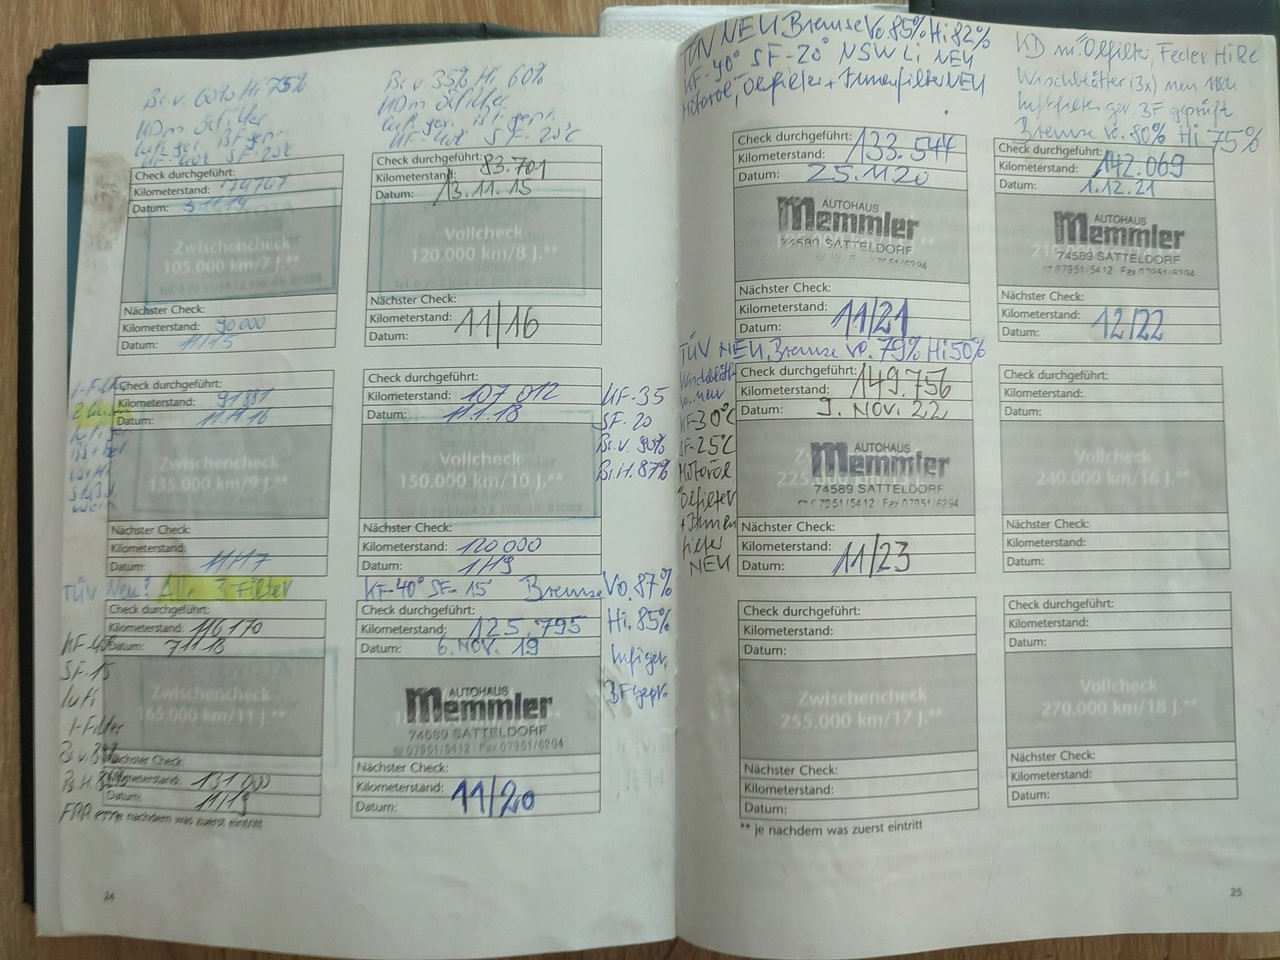 Br. v. 60% Hi 75%
KDm Ölfilter
Luft ger. BF gepr.
KF-40c SF-20c
Check durchgeführt:
Kilometerstand:
Datum:
Zwischencheck
105.000 km/7 J.**
Nächster Check:
Kilometerstand: 90 000
Datum: 11/15
Br. v. 35% Hi 60%
KDm Ölfilter
Luft. ger. BF gepr.
KF-40c SF-20°C
Check durchgeführt:
Kilometerstand: 83.701
Datum: 13.11.15
Vollcheck
120.000 km/8 J.**
Nächster Check:
Kilometerstand:
Datum: 11/16
Check durchgeführt:
Kilometerstand:
Datum: 11.11.16
Zwischencheck
135.000 km/9 J.**
Nächster Check:
Kilometerstand:
Datum: 11/17
Check durchgeführt:
Kilometerstand: 107 012
Datum: 11.1.18
Vollcheck
150.000 km/10 J.**
Nächster Check:
Kilometerstand: 120 000
Datum: 1/19
KF-35
SF-20
Br. v. 90%
Br. H. 87%
TÜV Neu! Alle 3 Filter
Check durchgeführt:
Kilometerstand: 116 170
Datum: 7.11.18
Zwischencheck
165.000 km/11 J.**
Nächster Check:
Kilometerstand: 131 000
Datum: 11/19
SF-15
Luft
I-Filter
nachdem was zuerst eintritt
KF-40° SF-15° Bremse Vo. 87%
Hi. 85%
Luftfi ger.
BF gepr.
Check durchgeführt:
Kilometerstand: 125.795
Datum: 6. NOV. 19
AUTOHAUS
Memmler
74589 SATTELDORF
07951/5412 · Fax 07951/6294
Nächster Check:
Kilometerstand:
Datum: 11/20
24
TÜV NEU Bremse Vo. 85% Hi 82%
KF-40° SF-20° NSW Li NEU
Motoröl, Ölfilter + Innenfilter NEU
Check durchgeführt:
Kilometerstand: 133.544
Datum: 25.11.20
AUTOHAUS
Memmler
74589 SATTELDORF
Nächster Check:
Kilometerstand:
Datum: 11/21
KD m. Ölfilter, Feder Hi Re
Wischblätter (3x) neu
Luftfilter ger. BF geprüft
Bremse Vo. 80% Hi 75%
Check durchgeführt:
Kilometerstand: 142.069
Datum: 1.12.21
AUTOHAUS
Memmler
74589 SATTELDORF
07951/5412 Fax 07951/6294
Nächster Check:
Kilometerstand:
Datum: 12/22
TÜV NEU, Bremse Vo. 79% Hi 50%
Wischblätter
Vo. neu
KF-30°C
SF-25°C
Motoröl
Ölfilter
+ Innen
filter
NEU
Check durchgeführt:
Kilometerstand: 149.756
Datum: 9. NOV. 22
AUTOHAUS
Memmler
74589 SATTELDORF
07951/5412 · Fax 07951/6294
Nächster Check:
Kilometerstand:
Datum: 11/23
Check durchgeführt:
Kilometerstand:
Datum:
Vollcheck
240.000 km/16 J.**
Nächster Check:
Kilometerstand:
Datum:
Check durchgeführt:
Kilometerstand:
Datum:
Zwischencheck
255.000 km/17 J.**
Nächster Check:
Kilometerstand:
Datum:
Check durchgeführt:
Kilometerstand:
Datum:
Vollcheck
270.000 km/18 J.**
Nächster Check:
Kilometerstand:
Datum:
** je nachdem was zuerst eintritt
25